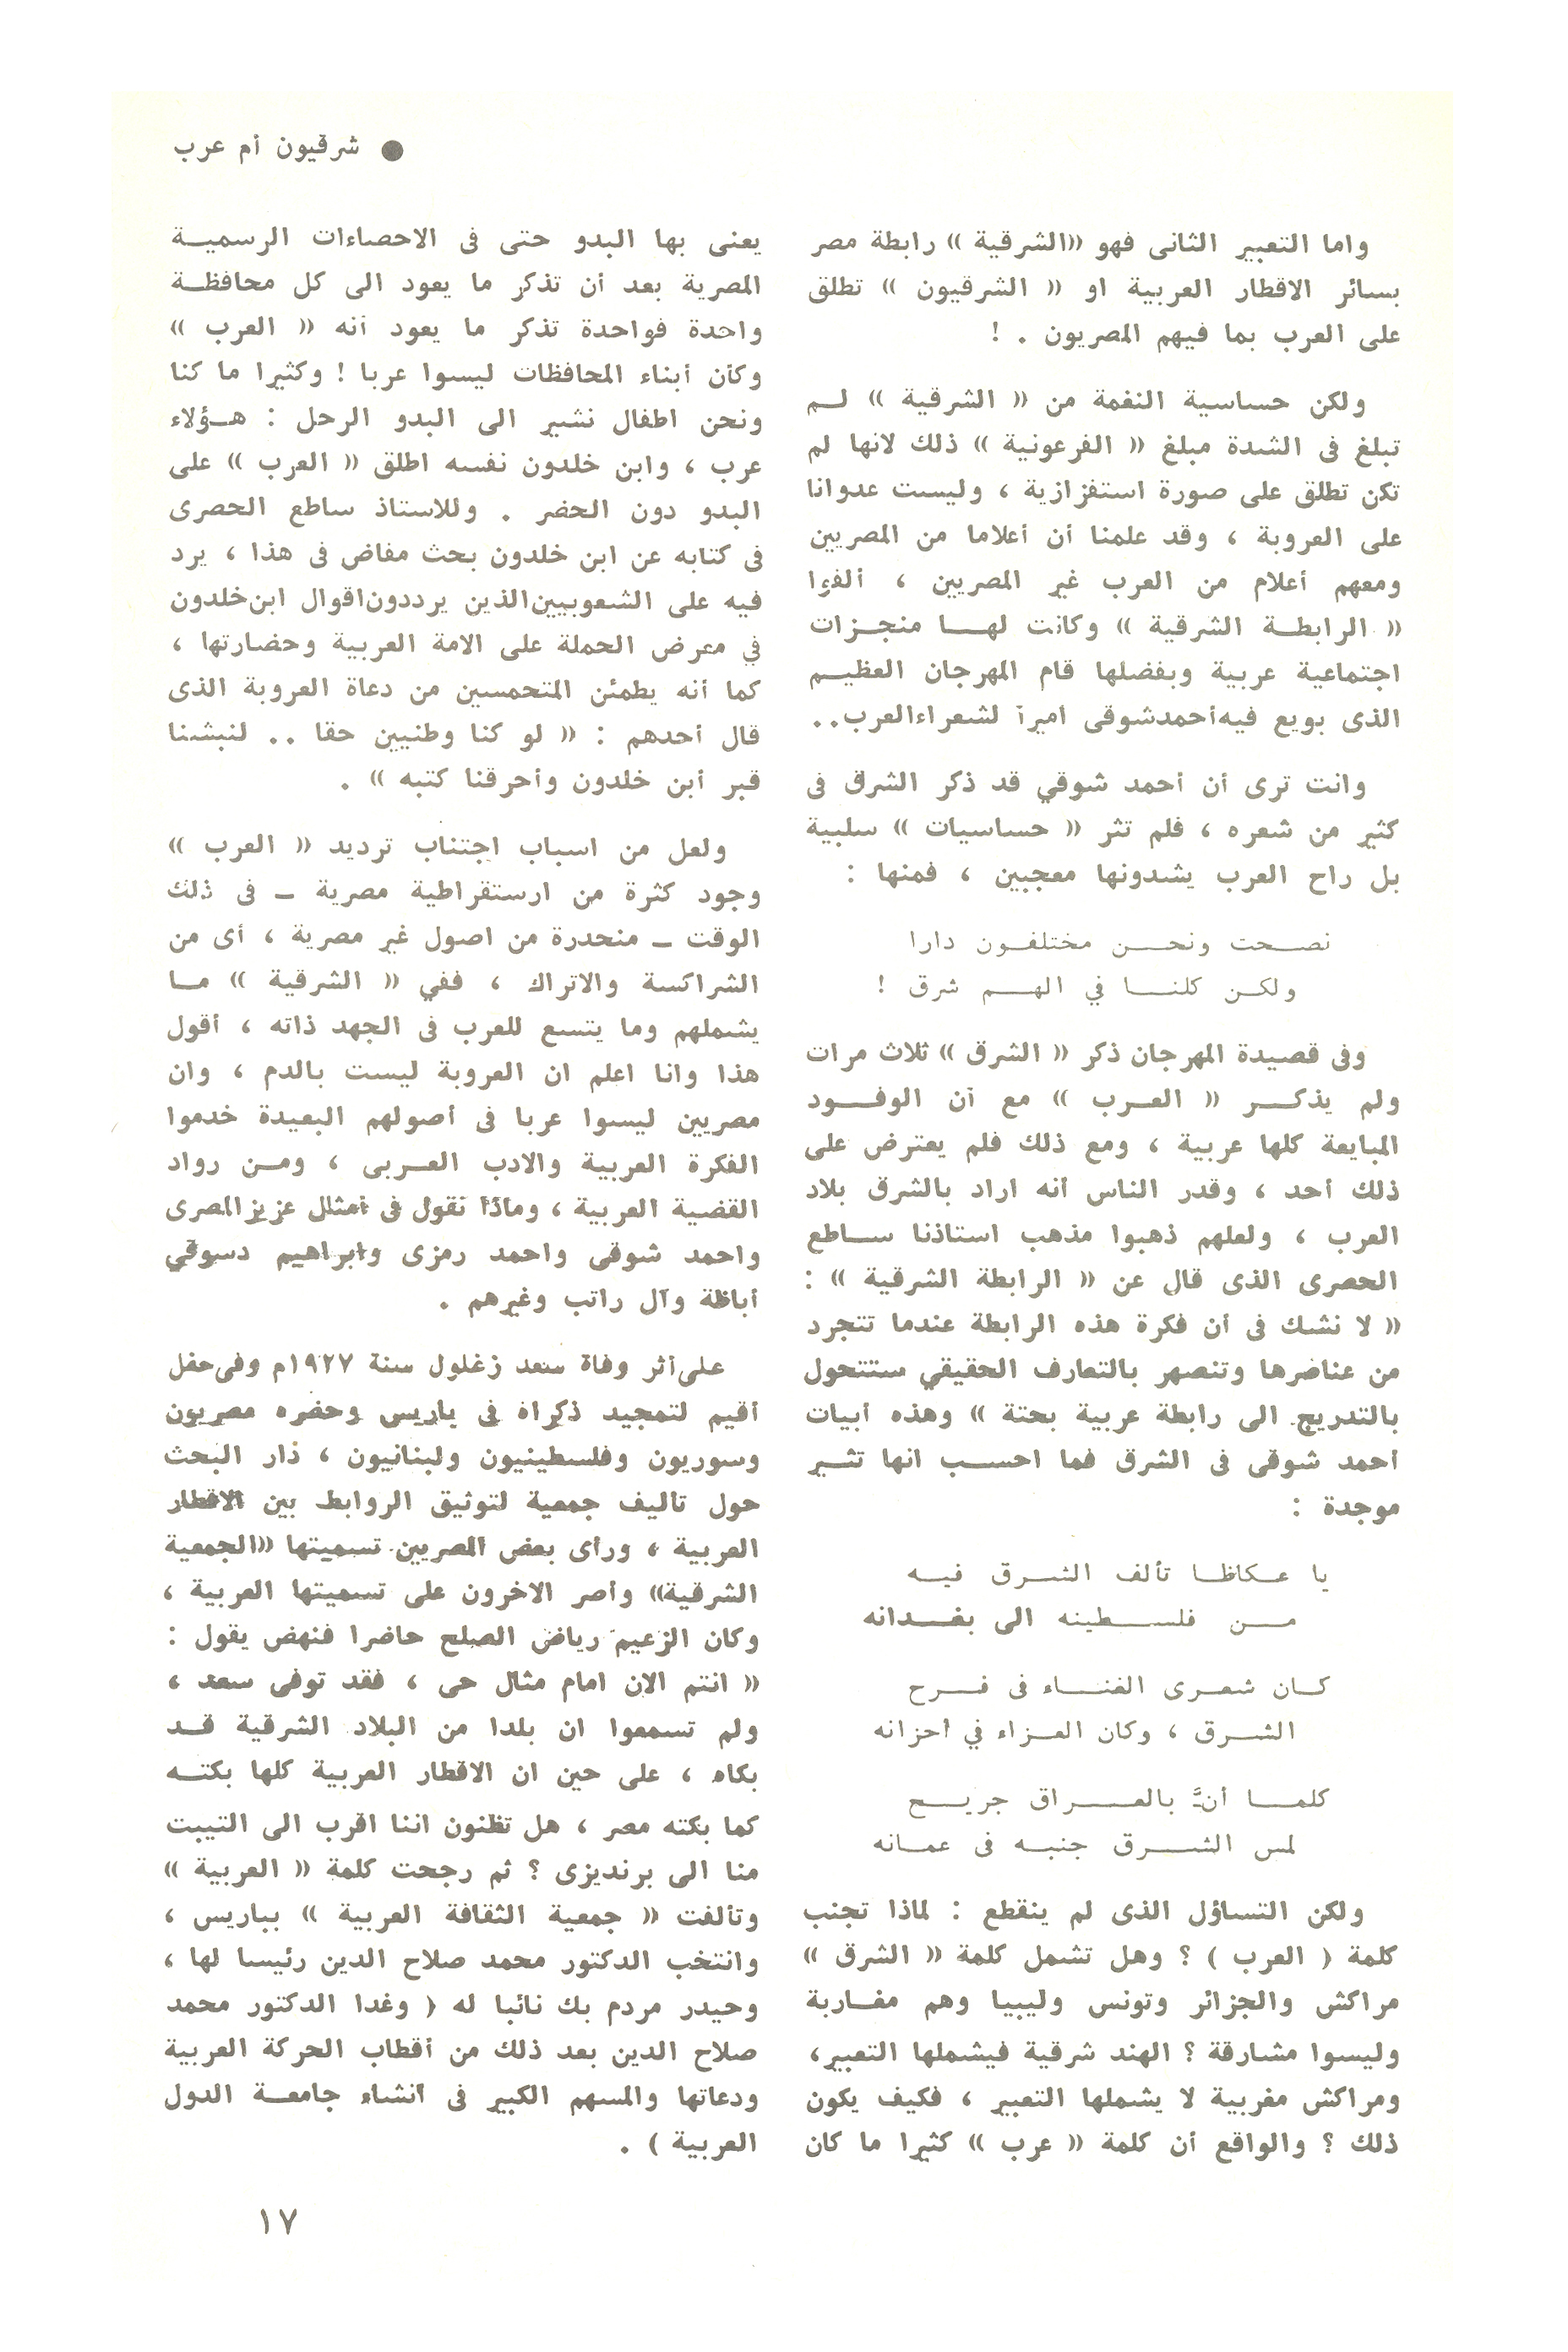 ● شرقيون أم عرب
واما التعبير الثانى فهو «الشرقية» رابطة مصر
بسائر الاقطار العربية او « الشرقيون » تطلق
على العرب بما فيهم المصريون . !
ولكن حساسية النغمة من « الشرقية » لم
تبلغ فى الشدة مبلغ « الفرعونية » ذلك لانها لم
تكن تطلق على صورة استفزازية ، وليست عدوانا
على العروبة ، وقد علمنا أن أعلاما من المصريين
ومعهم أعلام من العرب غير المصريين ، ألفوا
« الرابطة الشرقية » وكانت لها منجزات
اجتماعية عربية وبفضلها قام المهرجان العظيم
الذى بويع فيه أحمد شوقى أميرا لشعراء العرب..
وانت ترى أن أحمد شوقي قد ذكر الشرق فى
كثير من شعره ، فلم تثر « حساسيات » سلبية
بل راح العرب يشدونها معجبين ، فمنها :
نصحت ونحن مختلفون دارا
ولكن كلنا في الهم شرق !
وفى قصيدة المهرجان ذكر « الشرق » ثلاث مرات
ولم يذكر « العرب » مع أن الوفود
المبايعة كلها عربية ، ومع ذلك فلم يعترض على
ذلك أحد ، وقدر الناس أنه اراد بالشرق بلاد
العرب ، ولعلهم ذهبوا مذهب استاذنا ساطع
الحصرى الذى قال عن « الرابطة الشرقية » :
« لا نشك فى أن فكرة هذه الرابطة عندما تتجرد
من عناصرها وتنصهر بالتعارف الحقيقي ستتحول
بالتدريج الى رابطة عربية بحتة » وهذه أبيات
أحمد شوقى فى الشرق فما احسب انها تثير
موجدة :
يا عكاظا تألف الشرق فيه
من فلسطينه الى بغدانه
كان شعرى الغناء فى فرح
الشرق ، وكان العزاء في أحزانه
كلما أنَّ بالعراق جريح
لمس الشرق جنبه فى عمانه
ولكن التساؤل الذى لم ينقطع : لماذا تجنب
كلمة ( العرب ) ؟ وهل تشمل كلمة « الشرق »
مراكش والجزائر وتونس وليبيا وهم مغاربة
وليسوا مشارقة ؟ الهند شرقية فيشملها التعبير،
ومراكش مغربية لا يشملها التعبير ، فكيف يكون
ذلك ؟ والواقع أن كلمة « عرب » كثيرا ما كان
يعنى بها البدو حتى فى الاحصاءات الرسمية
المصرية بعد أن تذكر ما يعود الى كل محافظة
واحدة فواحدة تذكر ما يعود أنه « العرب »
وكأن أبناء المحافظات ليسوا عربا ! وكثيرا ما كنا
ونحن اطفال نشير الى البدو الرحل : هؤلاء
عرب ، وابن خلدون نفسه اطلق « العرب » على
البدو دون الحضر . وللاستاذ ساطع الحصرى
فى كتابه عن ابن خلدون بحث مفاض فى هذا ، يرد
فيه على الشعوبيين الذين يرددون اقوال ابن خلدون
في معرض الحملة على الامة العربية وحضارتها ،
كما أنه يطمئن المتحمسين من دعاة العروبة الذى
قال أحدهم : « لو كنا وطنيين حقا .. لنبشنا
قبر أبن خلدون وأحرقنا كتبه » .
ولعل من اسباب اجتناب ترديد « العرب »
وجود كثرة من ارستقراطية مصرية ــ فى ذلك
الوقت ــ منحدرة من اصول غير مصرية ، أى من
الشراكسة والاتراك ، ففي « الشرقية » ما
يشملهم وما يتسع للعرب فى الجهد ذاته ، أقول
هذا وانا اعلم ان العروبة ليست بالدم ، وان
مصريين ليسوا عربا فى أصولهم البعيدة خدموا
الفكرة العربية والادب العربى ، ومن رواد
القضية العربية ، وماذا نقول فى أمثال عزيز المصرى
واحمد شوقى واحمد رمزى وابراهيم دسوقي
أباظة وآل راتب وغيرهم .
على أثر وفاة سعد زغلول سنة ١٩٢٧م وفى حفل
أقيم لتمجيد ذكراه فى باريس وحضره مصريون
وسوريون وفلسطينيون ولبنانيون ، دار البحث
حول تأليف جمعية لتوثيق الروابط بين الاقطار
العربية ، ورأى بعض المصريين تسميتها «الجمعية
الشرقية» وأصر الاخرون على تسميتها العربية ،
وكان الزعيم رياض الصلح حاضرا فنهض يقول :
« انتم الان امام مثال حى ، فقد توفى سعد ،
ولم تسمعوا ان بلدا من البلاد الشرقية قد
بكاه ، على حين ان الاقطار العربية كلها بكته
كما بكته مصر ، هل تظنون اننا اقرب الى التيبت
منا الى برنديزى ؟ ثم رجحت كلمة « العربية »
وتألفت « جمعية الثقافة العربية » بباريس ،
وانتخب الدكتور محمد صلاح الدين رئيسا لها ،
وحيدر مردم بك نائبا له ( وغدا الدكتور محمد
صلاح الدين بعد ذلك من أقطاب الحركة العربية
ودعاتها والمسهم الكبير فى أنشاء جامعة الدول
العربية ) .
١٧